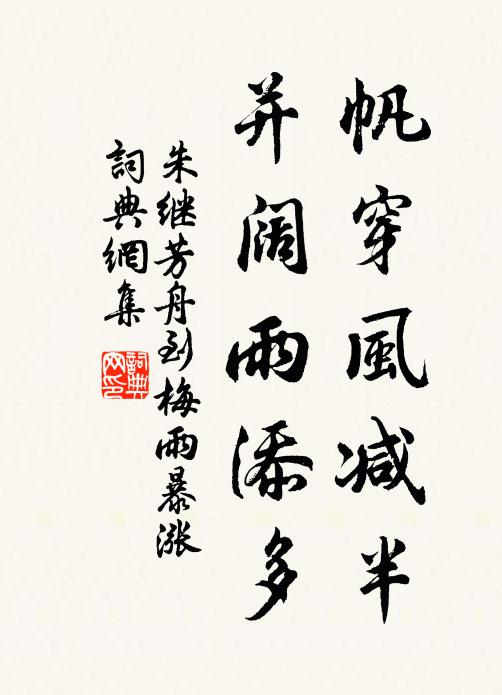 帆穿風减半
并阔雨添多
朱继芳舟到梅雨暴漲
詞典網集
詞典网印